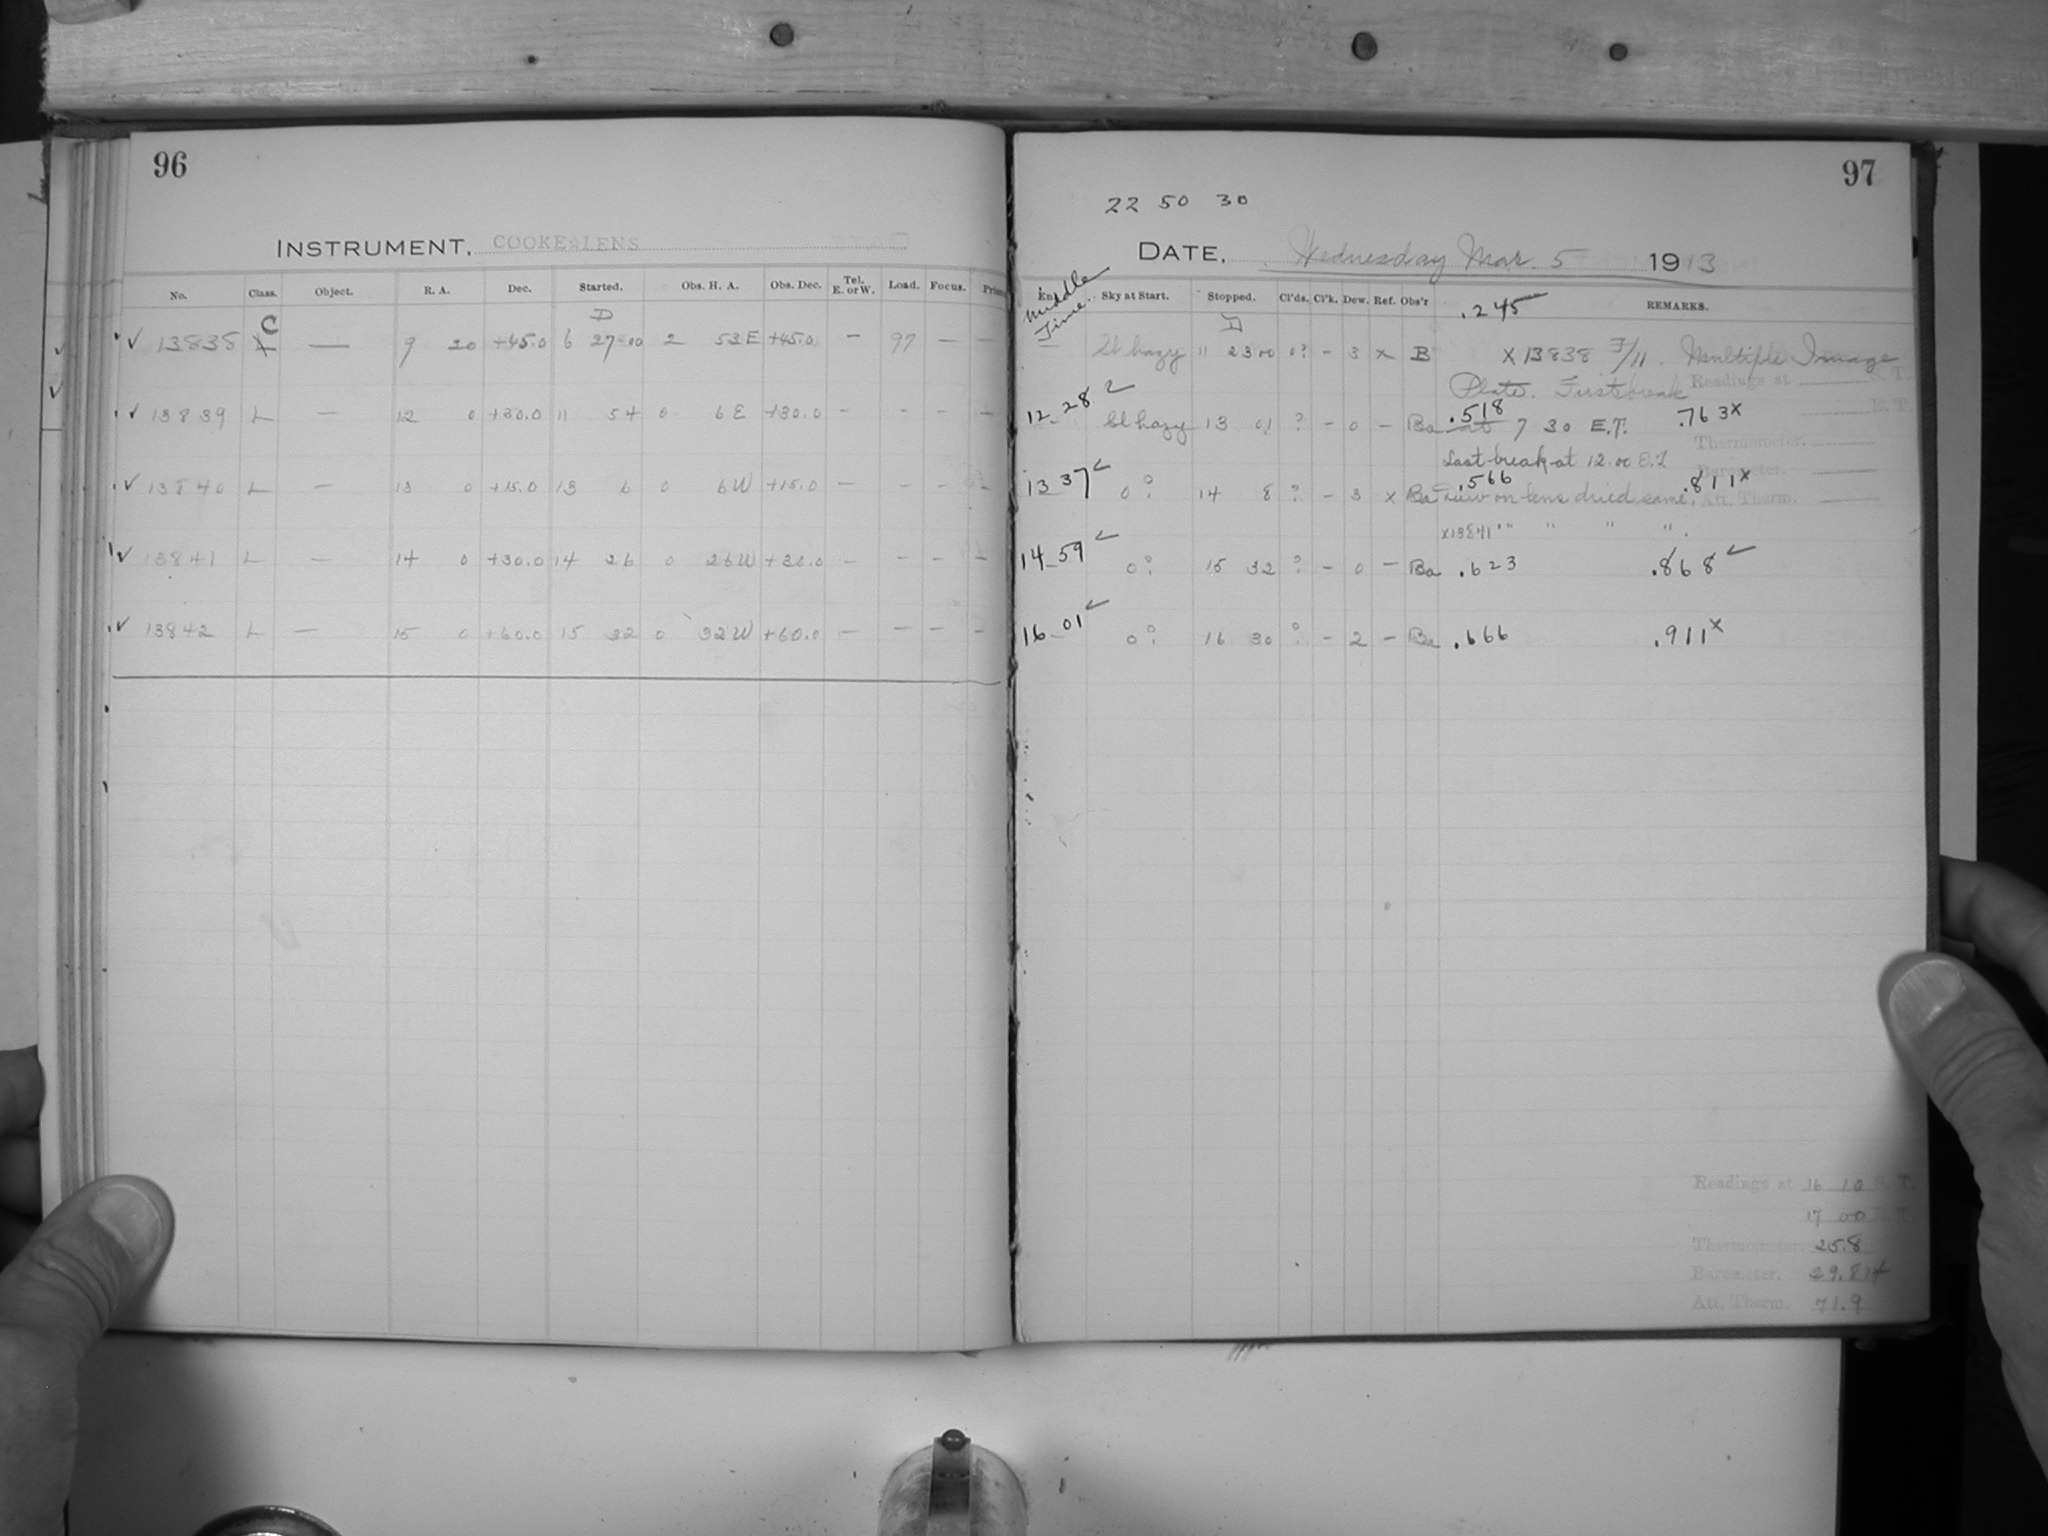 96
INSTRUMENT, COOKE LENS
No. Class. Object. R. A. Dec. Started. Obs. H. A. Obs. Dec. Tel. E. or W. Load. Focus.
D
C
✓ 13838 — 9 20 +45.0 6 27 00 2 53 E +45.0 — 97 — —
✓ 13839 L — 12 0 +30.0 11 54 0 6 E +30.0 — - - —
✓ 13840 L — 13 0 +15.0 13 6 0 6 W +15.0 — - -
✓ 13841 L — 14 0 +30.0 14 26 0 26 W +30.0 — - - —
✓ 13842 L — 15 0 +60.0 15 32 0 32 W +60.0 — — - —
97
22 50 30
DATE, Wednesday Mar. 5 1913
Middle Time.
Sky at Start. Stopped. Cl'ds. Cl'k. Dew. Ref. Obs'r REMARKS.
.245
D
Sl hazy 11 23 00 0? - 3 x B X 13838 F/11. Multiple Image
Plate. First break
Readings at S. T.
E. T.
12_28 ✓ Sl hazy 13 01 ? - 0 - Ba .518 at 7 30 E.T. .763x
Thermometer.
Last break at 12.00 E.T.
Barometer.
13_37 ✓ 0? 14 8 ? - 3 x Ba .566 Dew on lens dried same. .811x
Att. Therm.
X13841 " " " " "
14_59 ✓ 0? 15 32 ? - 0 - Ba .623 .868 ✓
16_01 ✓ 0? 16 30 ? - 2 - Ba .666 .911x
Readings at 16 10 S. T.
17 00
Thermometer. 25.8
Barometer. 29.814
Att. Therm. 71.9